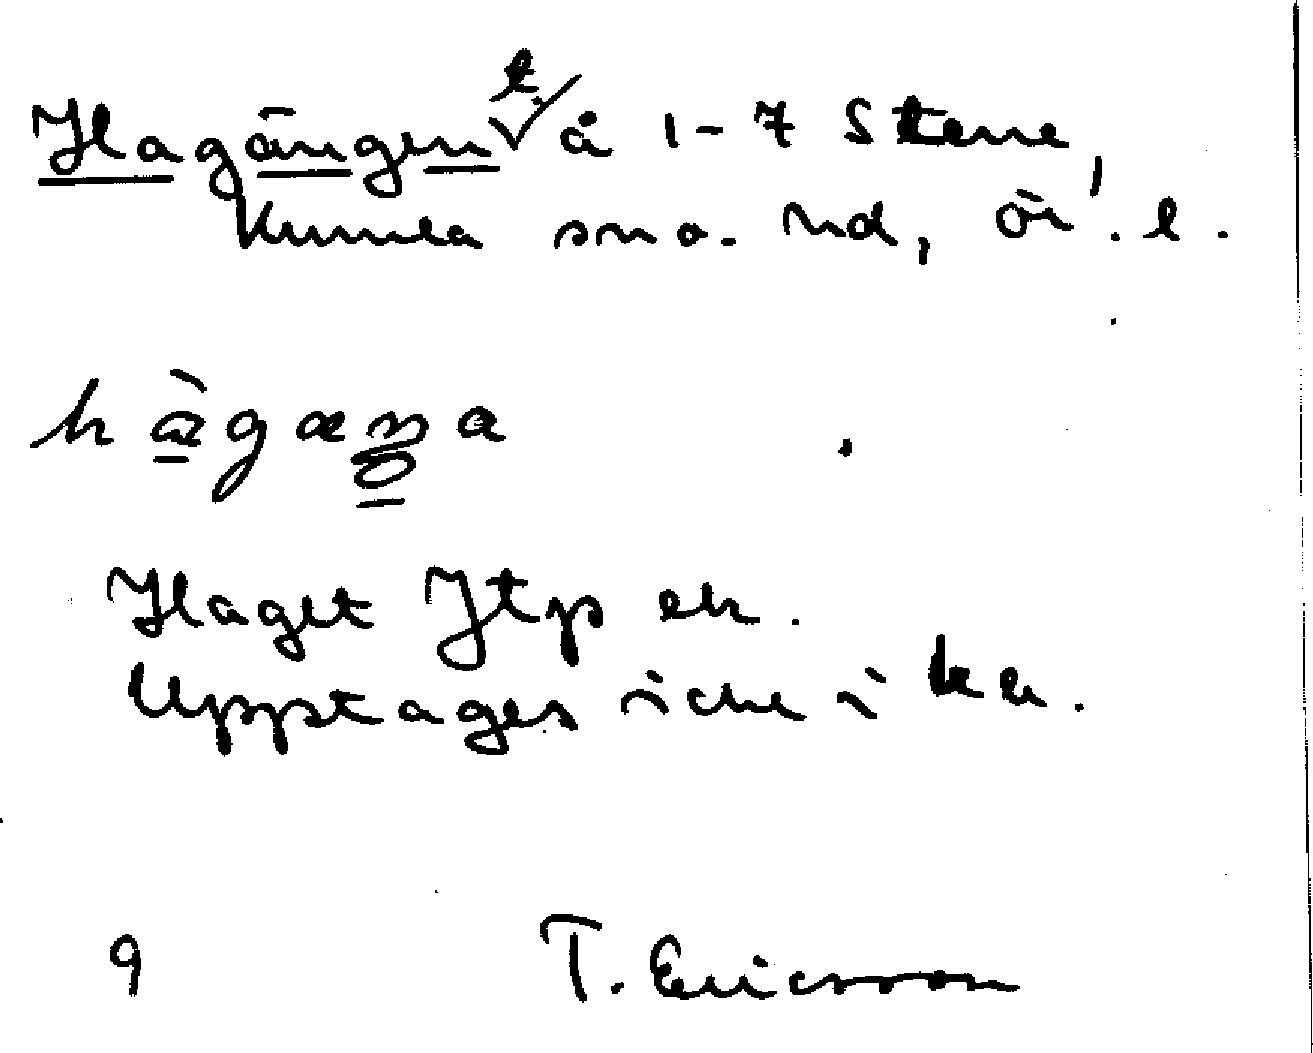 Hagängen t. å 1-7 Stene,
Kumla sn o. hd, ör. l.
Haget Jtp ek.
Upptages icke i ka.
9 T. Ericsson